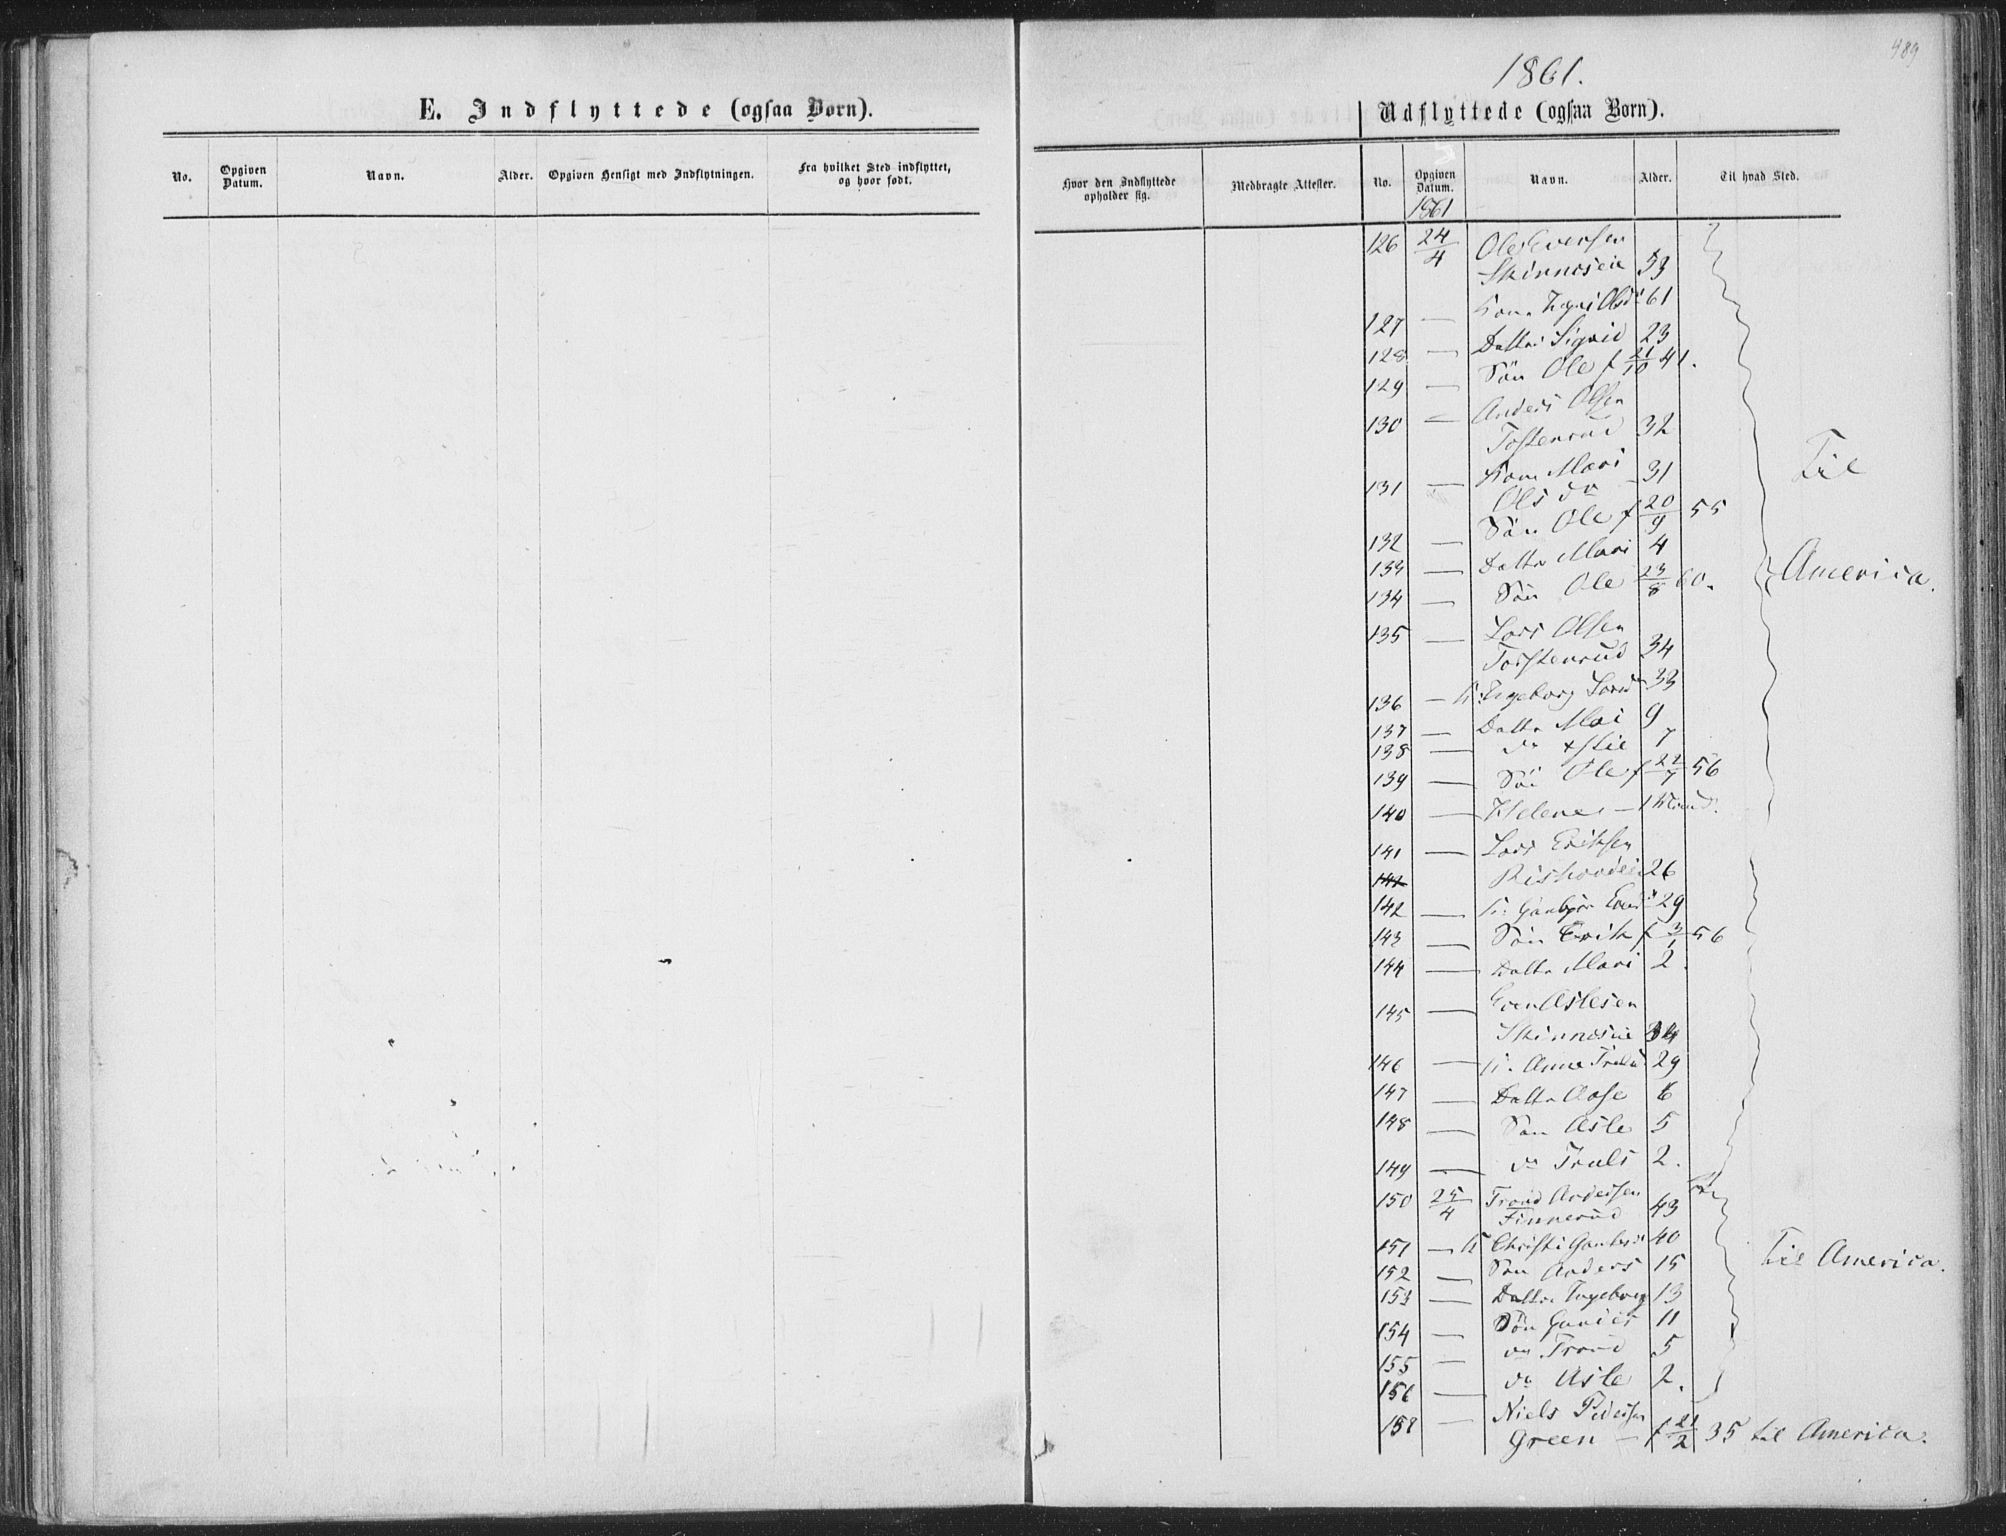 489
1861.
E. Indflyttede (ogsaa Børn).
Udflyttede (ogsaa Børn).
No.
Opgiven Datum.
Navn.
Alder.
Opgiven Hensigt med Indflytningen.
Fra hvilket Sted indflyttet, og hvor født.
Hvor den Indflyttede opholder sig.
Medbragte Attester.
No.
Opgiven Datum.
Navn.
Alder.
Til hvad Sted.
1861
126 24/4 Ole Evensen
Skinneseie 53
127 — Kone Olsdr 61
128 — Dattr Sigrid 23
129 — Søn Ole f 21/10 41.
130 — Anders Olsen
Tostenrud 32
131 — Kone Mari 31
Olsdr
132 — Søn Ole f 20/9 55
133 — Dattr Mari 4
134 — Søn Ole 23/8 60.
Til
America.
135 — Lars Olsen
Torstenrud 34
136 — K: Ingeborg Larsdr 33
137 — Dattr Mari 9
138 — do 7
139 — Søn Ole f 22/7 56
140 — Helene — 1 Maaned.
141 — Lars Eriksen
142 26
142 — K: Gunbjør 29
143 — Søn Erik f 3/1 56
144 — Dattr Mari 2.
145 — Even Aslesen
Skinneseie 34
146 — K. Anne 29
147 — Dattr Aase 6
148 — Søn Asle 5
149 — do Truls 2.
150 25/4 Trond Andersen
Finnerud 43
151 — K Christi 40
152 — Søn Anders 15
153 — Dattr Ingeborg 13
154 — Søn 11
155 — do Trond 5
156 — do Asle 2.
til America.
158 — Niels Pedersen
Green — f 21/2 35 til America.